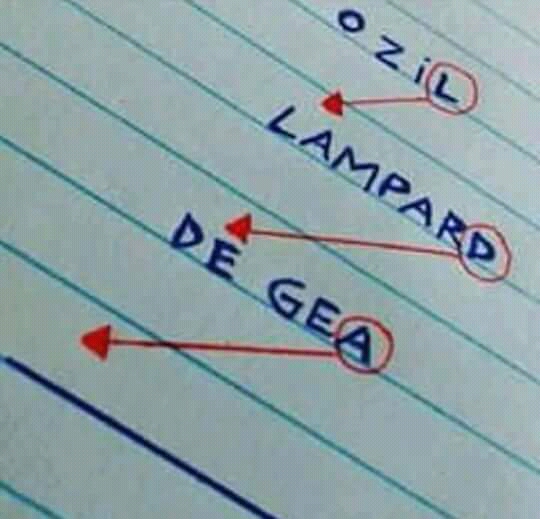 OZiL
LAMPARD
DE GEA